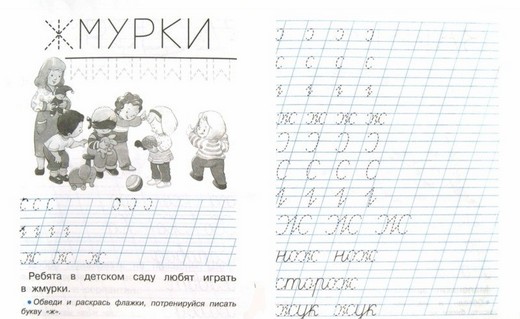 ЖМУРКИ
с с с ɔ ɔ ɔ
ж ж ж
Ребята в детском саду любят играть
в жмурки.
• Обведи и раскрась флажки, потренируйся писать
букву «ж».
ɔ ɔ ɔ ɔ
с с с с
ж ж ж ж
Ɔ Ɔ Ɔ Ɔ
С С С С
Ж Ж Ж
нож нож
сторож
жук жук